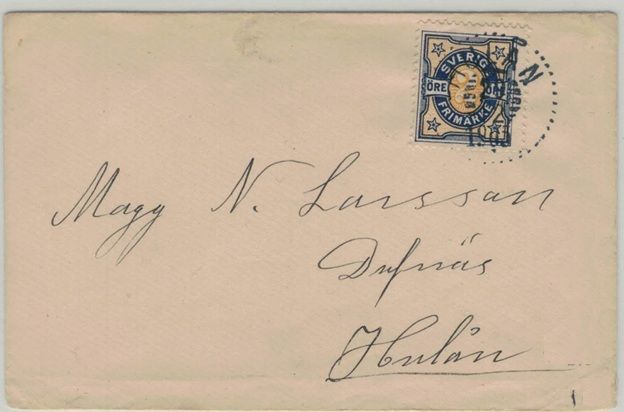 SVERIGE
ÖRE
FRIMÄRKE
1901
Magg N. Larsson
Dufnäs
Hulån